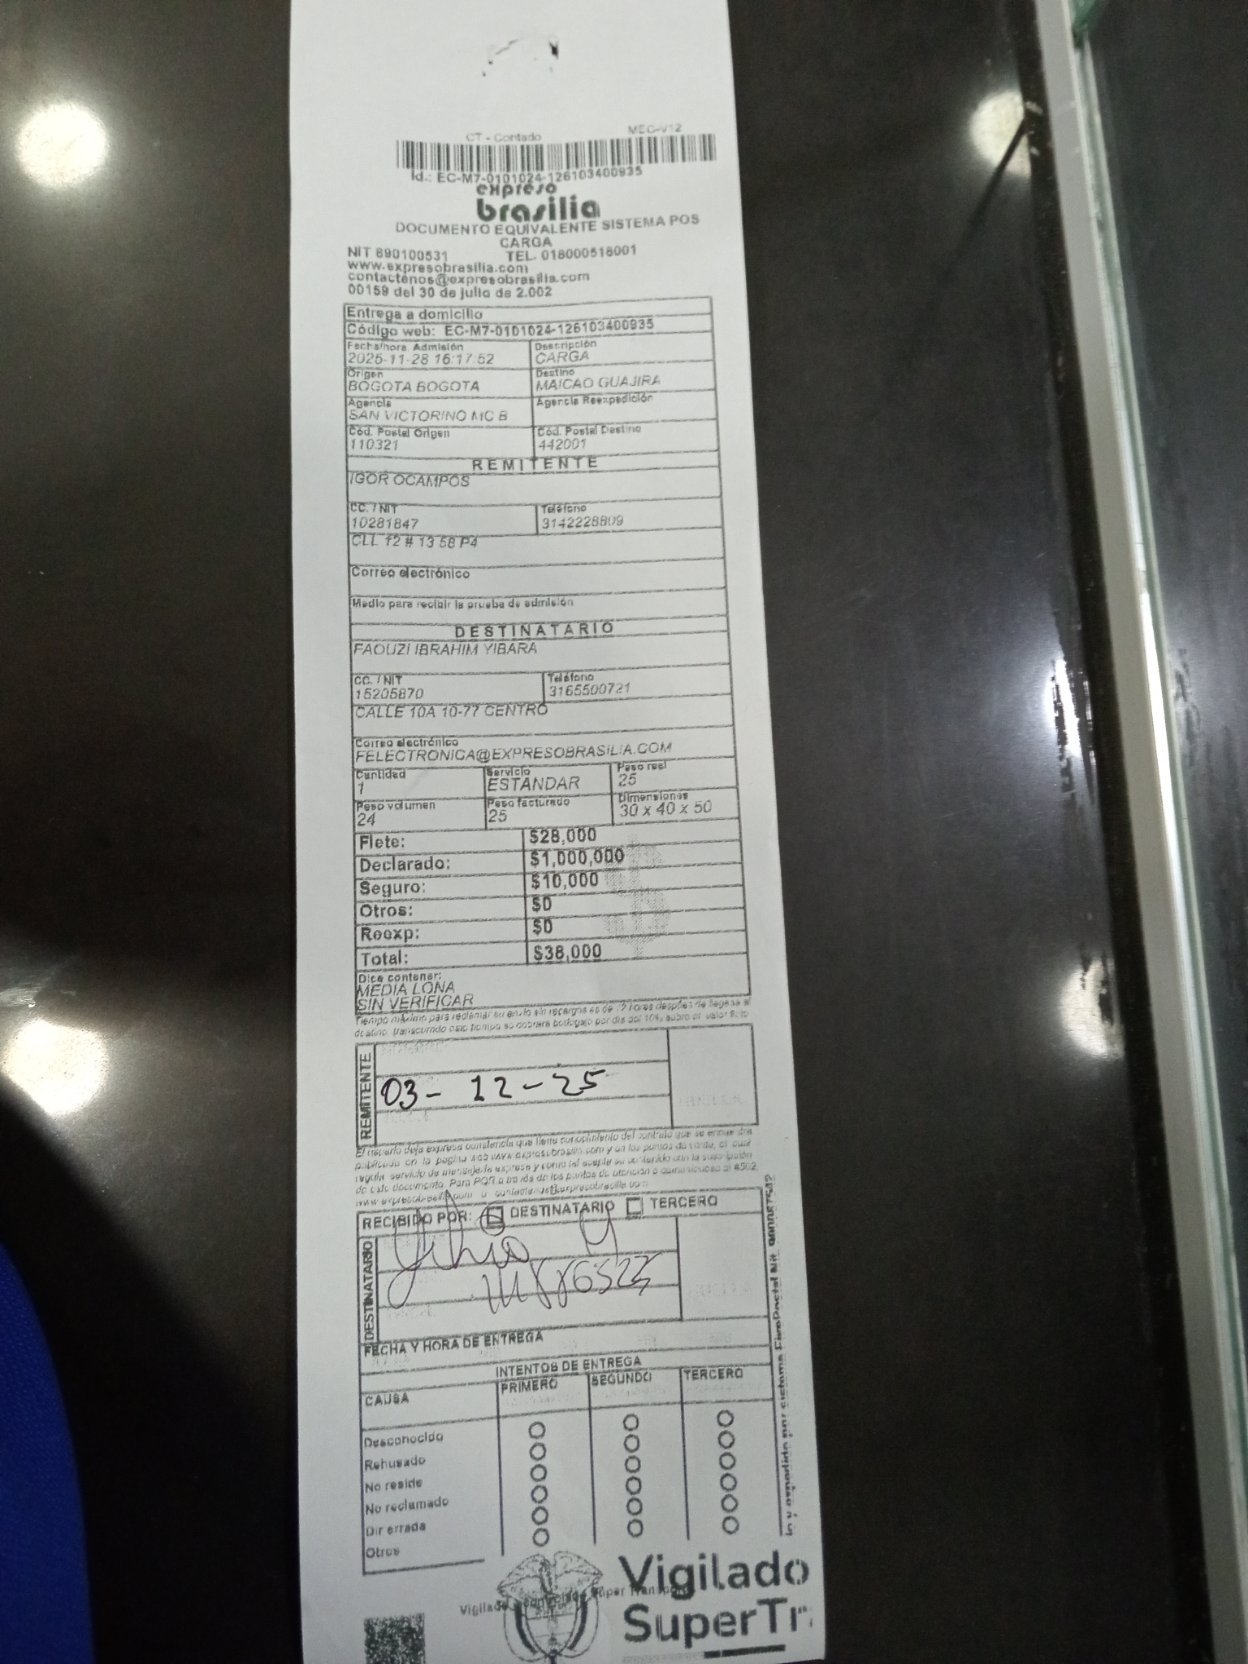 CT - Contado MEC-V12
Id.: EC-M7-0101024-126103400935
expreso
brasilia
DOCUMENTO EQUIVALENTE SISTEMA POS
CARGA
NIT 890100531 TEL. 018000518001
www.expresobrasilia.com
contactenos@expresobrasilia.com
00159 del 30 de julio de 2.002
Entrega a domicilio
Código web: EC-M7-0101024-126103400935
Fecha/hora Admisión Descripción
2025-11-28 16:17:52 CARGA
Origen Destino
BOGOTA BOGOTA MAICAO GUAJIRA
Agencia Agencia Reexpedición
SAN VICTORINO MC B
Cód. Postal Origen Cód. Postal Destino
110321 442001
REMITENTE
IGOR OCAMPOS
CC. / NIT Teléfono
10281847 3142228809
CLL 12 # 13 58 P4
Correo electrónico
Medio para recibir la prueba de admisión
DESTINATARIO
FAOUZI IBRAHIM YIBARA
CC. / NIT Teléfono
15205870 3165500721
CALLE 10A 10-77 CENTRO
Correo electrónico
FELECTRONICA@EXPRESOBRASILIA.COM
Cantidad Servicio Peso real
1 ESTANDAR 25
Peso volumen Peso facturado Dimensiones
24 25 30 x 40 x 50
Flete: $28,000
Declarado: $1,000,000
Seguro: $10,000
Otros: $0
Reexp: $0
Total: $38,000
Dice contener:
MEDIA LONA
SIN VERIFICAR
Tiempo máximo para reclamar su envío sin recargos es de 72 horas después de llegada al
destino, transcurrido este tiempo se cobrará bodegaje por día del 10% sobre el valor flete
REMITENTE
03- 12-25
El usuario deja expresa constancia que tiene conocimiento del contrato que se encuentra
publicado en la página web www.expresobrasilia.com y en los puntos de venta, el cual
regula servicio de mensajería expresa y como tal acepta su contenido con la suscripción
de este documento. Para PQR a través de los puntos de atención o comunicarse al #502,
www.expresobrasilia.com o contactenos@expresobrasilia.com
RECIBIDO POR: DESTINATARIO TERCERO
DESTINATARIO
FECHA Y HORA DE ENTREGA
INTENTOS DE ENTREGA
CAUSA PRIMERO SEGUNDO TERCERO
Desconocido
Rehusado
No reside
No reclamado
Dir errada
Otros
Vigilado
SuperTr